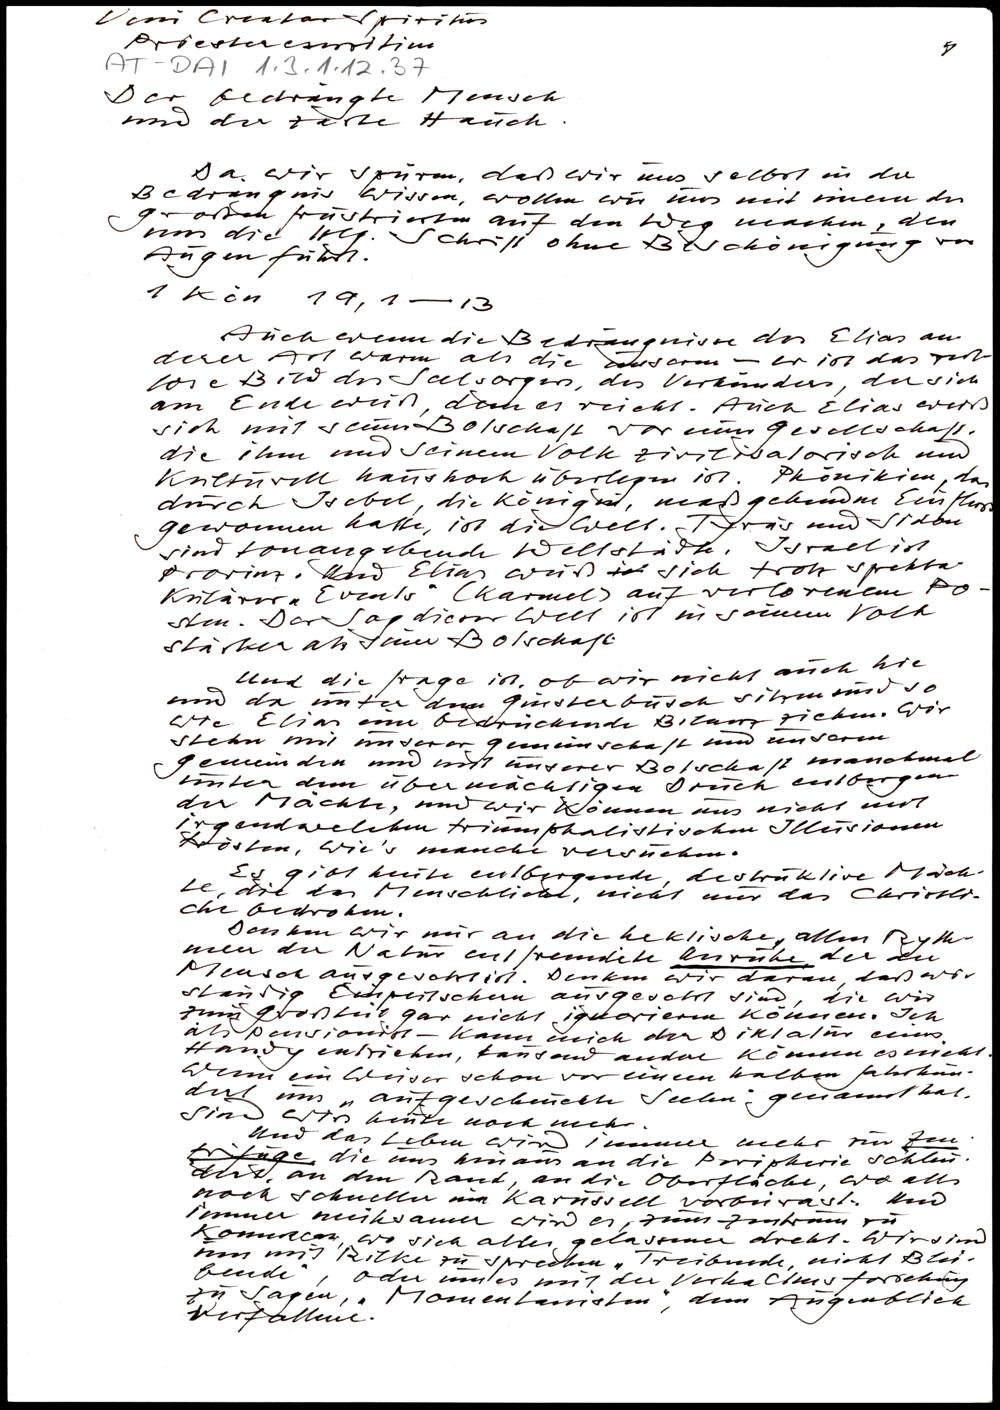 Veni Creator Spiritus
Priesterexerzitien
AT-DAI 1.3.1.12.37
Der bedrängte Mensch
und der zarte Hauch.
Da wir spüren, daß wir uns selbst in der
Bedrängnis wissen, wollen wir uns mit einem der
großen Frustrierten auf den Weg machen, den
uns die Hlg. Schrift ohne Beschönigung vor
Augen führt.
1 Kön 19,1—13
Auch wenn die Bedrängnisse des Elias an-
derer Art waren als die unseren — er ist das zeit-
lose Bild des Seelsorgers, des Verkünders, der sich
am Ende weiß, dem es reicht. Auch Elias weiß
sich mit seiner Botschaft vor einer Gesellschaft,
die ihm und seinem Volk zivilisatorisch und
kulturell haushoch überlegen ist. Phönikien, das
durch Isebel, die Königin, maßgebenden Einfluss
gewonnen hatte, ist die Welt. Tyrus und Sidon
sind tonangebende Weltstädte. Israel ist
Provinz. Und Elias weiß sich trotz spekta-
kulärer „Events" (Karmel) auf verlorenem Po-
sten. Der Sog dieser Welt ist in seinem Volk
stärker als seine Botschaft
Und die Frage ist, ob wir nicht auch hie
und da unter dem Ginsterbusch sitzen und so
wie Elias eine bedrückende Bilanz ziehen. Wir
stehn mit unserer Gemeinschaft und unseren
Gemeinden und mit unserer Botschaft manchmal
unter dem übermächtigen Druck entbergen-
der Mächte, und wir können uns nicht mit
irgendwelchen triumphalistischen Illusionen
trösten, wie's manche versuchen.
Es gibt heute entbergende, destruktive Mäch-
te, die das Menschliche, nicht nur das Christli-
che bedrohen.
Denken wir nur an die hektische, allen Ryth-
men der Natur entfremdete Unruhe, der der
Mensch ausgesetzt ist. Denken wir daran, daß wir
ständig Einpeitschern ausgesetzt sind, die wir
zum Großteil gar nicht ignorieren können. Ich
als Pensionist – kann mich der Diktatur eines
Handy entziehen, tausend andere können es nicht.
Wenn ein Weiser schon vor einem halben Jahrhun-
dert uns „aufgescheuchte Seelen" genannt hat,
sind wirs heute noch mehr.
Und das Leben wird immer mehr zur Zen-
trifuge, die uns hinaus an die Peripherie schleu-
dert, an den Rand, an die Oberfläche, wo alles
noch schneller im Karussell vorbeirast. Und
immer mühsamer wird es, zum Zentrum zu
kommen, wo sich alles gelassener dreht. Wir sind
um mit Rilke zu sprechen „Treibende, nicht Blei-
bende", oder um es mit der Verhaltensforschung
zu sagen, „Momentanisten", dem Augenblick
Verfallene.